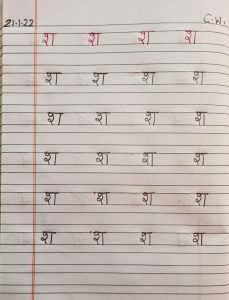 21-1-22 C.W.
श श श श
श श श श
श श श श
श श श श
श श श श
श श श श